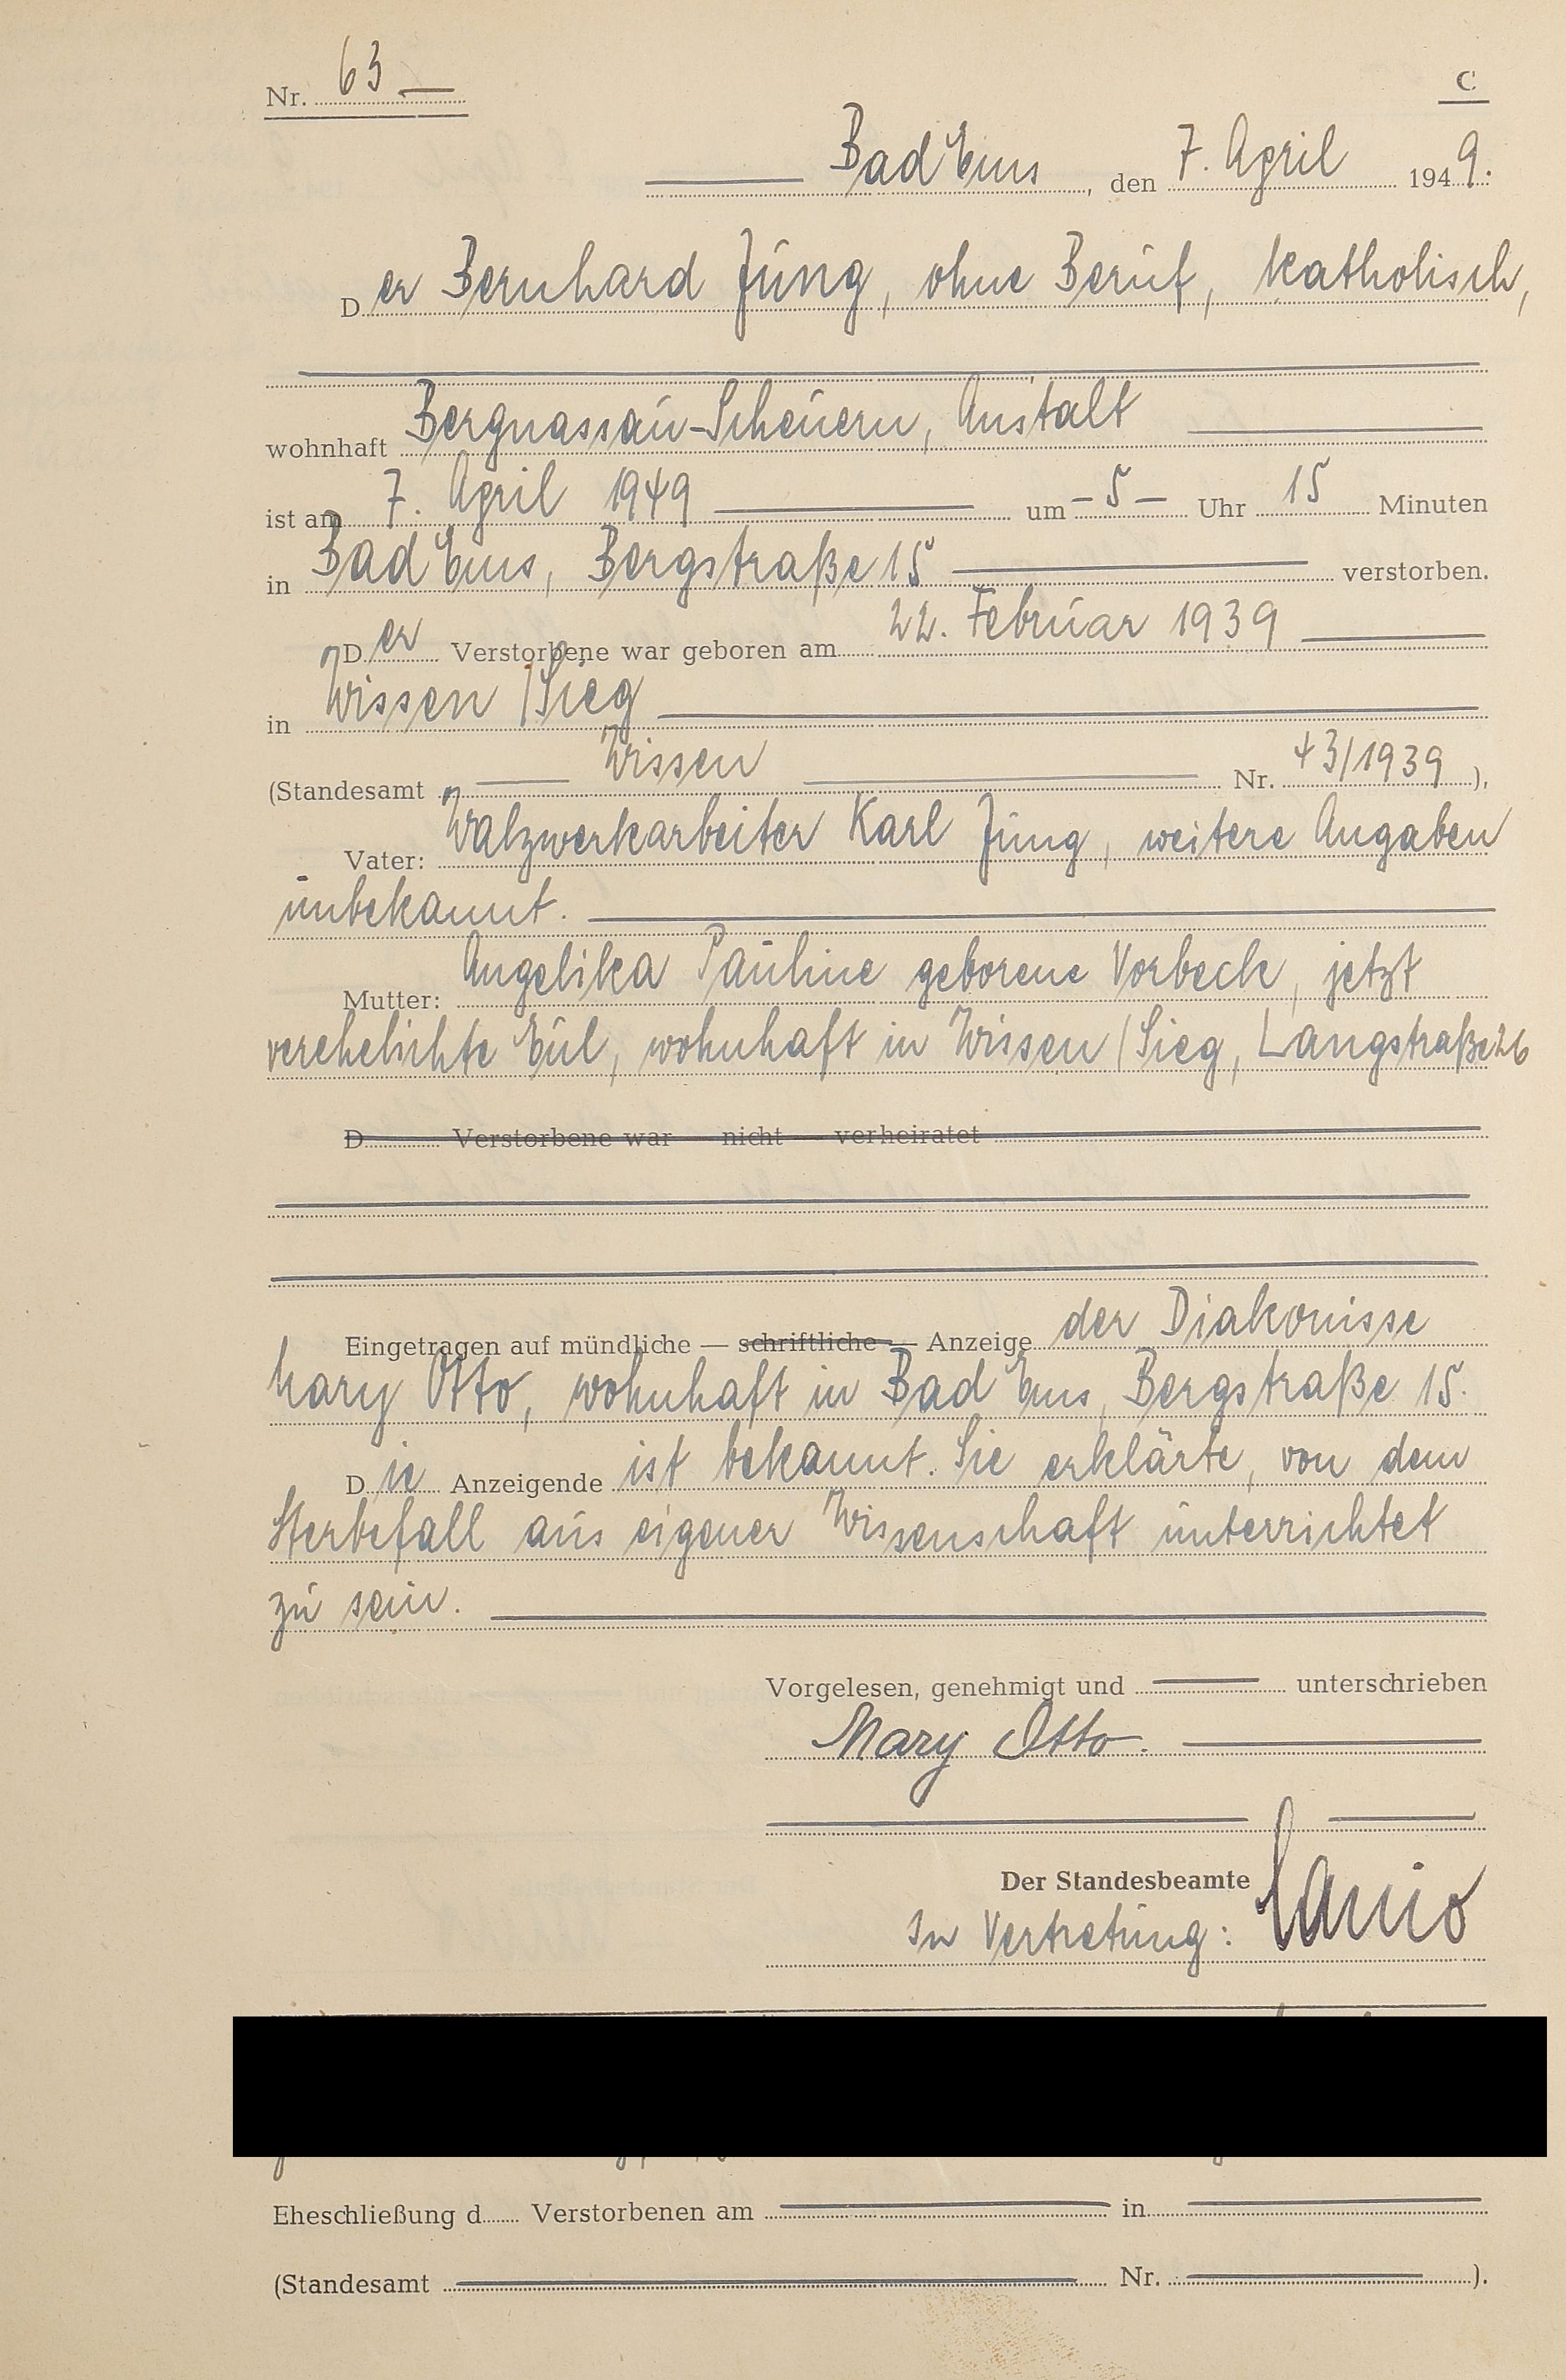 Nr. 63 —
C
Bad Ems, den 7. April 1949.
Der Bernhard Jung, ohne Beruf, katholisch,
wohnhaft Bergnassau-Scheuern, Anstalt
ist am 7. April 1949 um - 5 - Uhr 15 Minuten
in Bad Ems, Bergstraße 15 verstorben.
Der Verstorbene war geboren am 22. Februar 1939
in Wissen/Sieg
(Standesamt Wissen Nr. 43/1939),
Vater: Walzwerkarbeiter Karl Jung, weitere Angaben
unbekannt.
Mutter: Angelika Pauline geborene Vorbeck, jetzt
verehelichte Eul, wohnhaft in Wissen/Sieg, Langstraße 26
D Verstorbene war — nicht — verheiratet
Eingetragen auf mündliche — schriftliche — Anzeige der Diakonisse
Mary Otto, wohnhaft in Bad Ems, Bergstraße 15.
Die Anzeigende ist bekannt. Sie erklärte, von dem
Sterbefall aus eigener Wissenschaft unterrichtet
zu sein.
Vorgelesen, genehmigt und unterschrieben
Mary Otto.
Der Standesbeamte
In Vertretung:
Eheschließung d Verstorbenen am in
(Standesamt Nr. ).